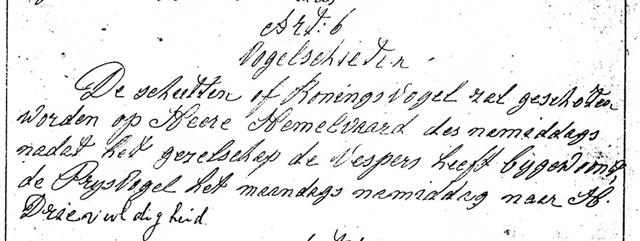 Art: 6
Vogelschieten
De scheetten of Konings Vogel zal geschoten
worden op Heere Hemelvaard des namiddags
nadat het gezelschap de Vespers heeft bijgewoond,
de Prys Vogel het maandags namiddag naar H.
Drievuldigheid